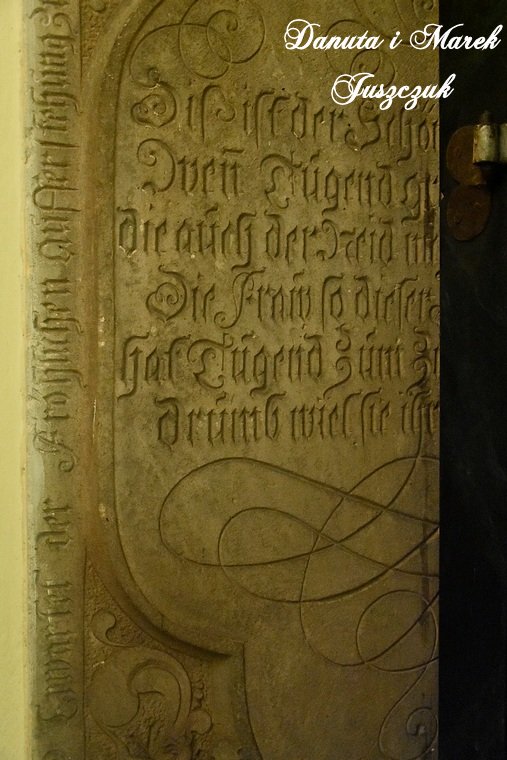 Danuta i Marek
Juszczuk
Diß ist der Schön
Vnd Tugend gr
die auch der Neid ni
Die Fraw so dieser
hat Tugend Zum
drumb wiel sie ihr
Erwartet der Fröhlichen Aufferstehung